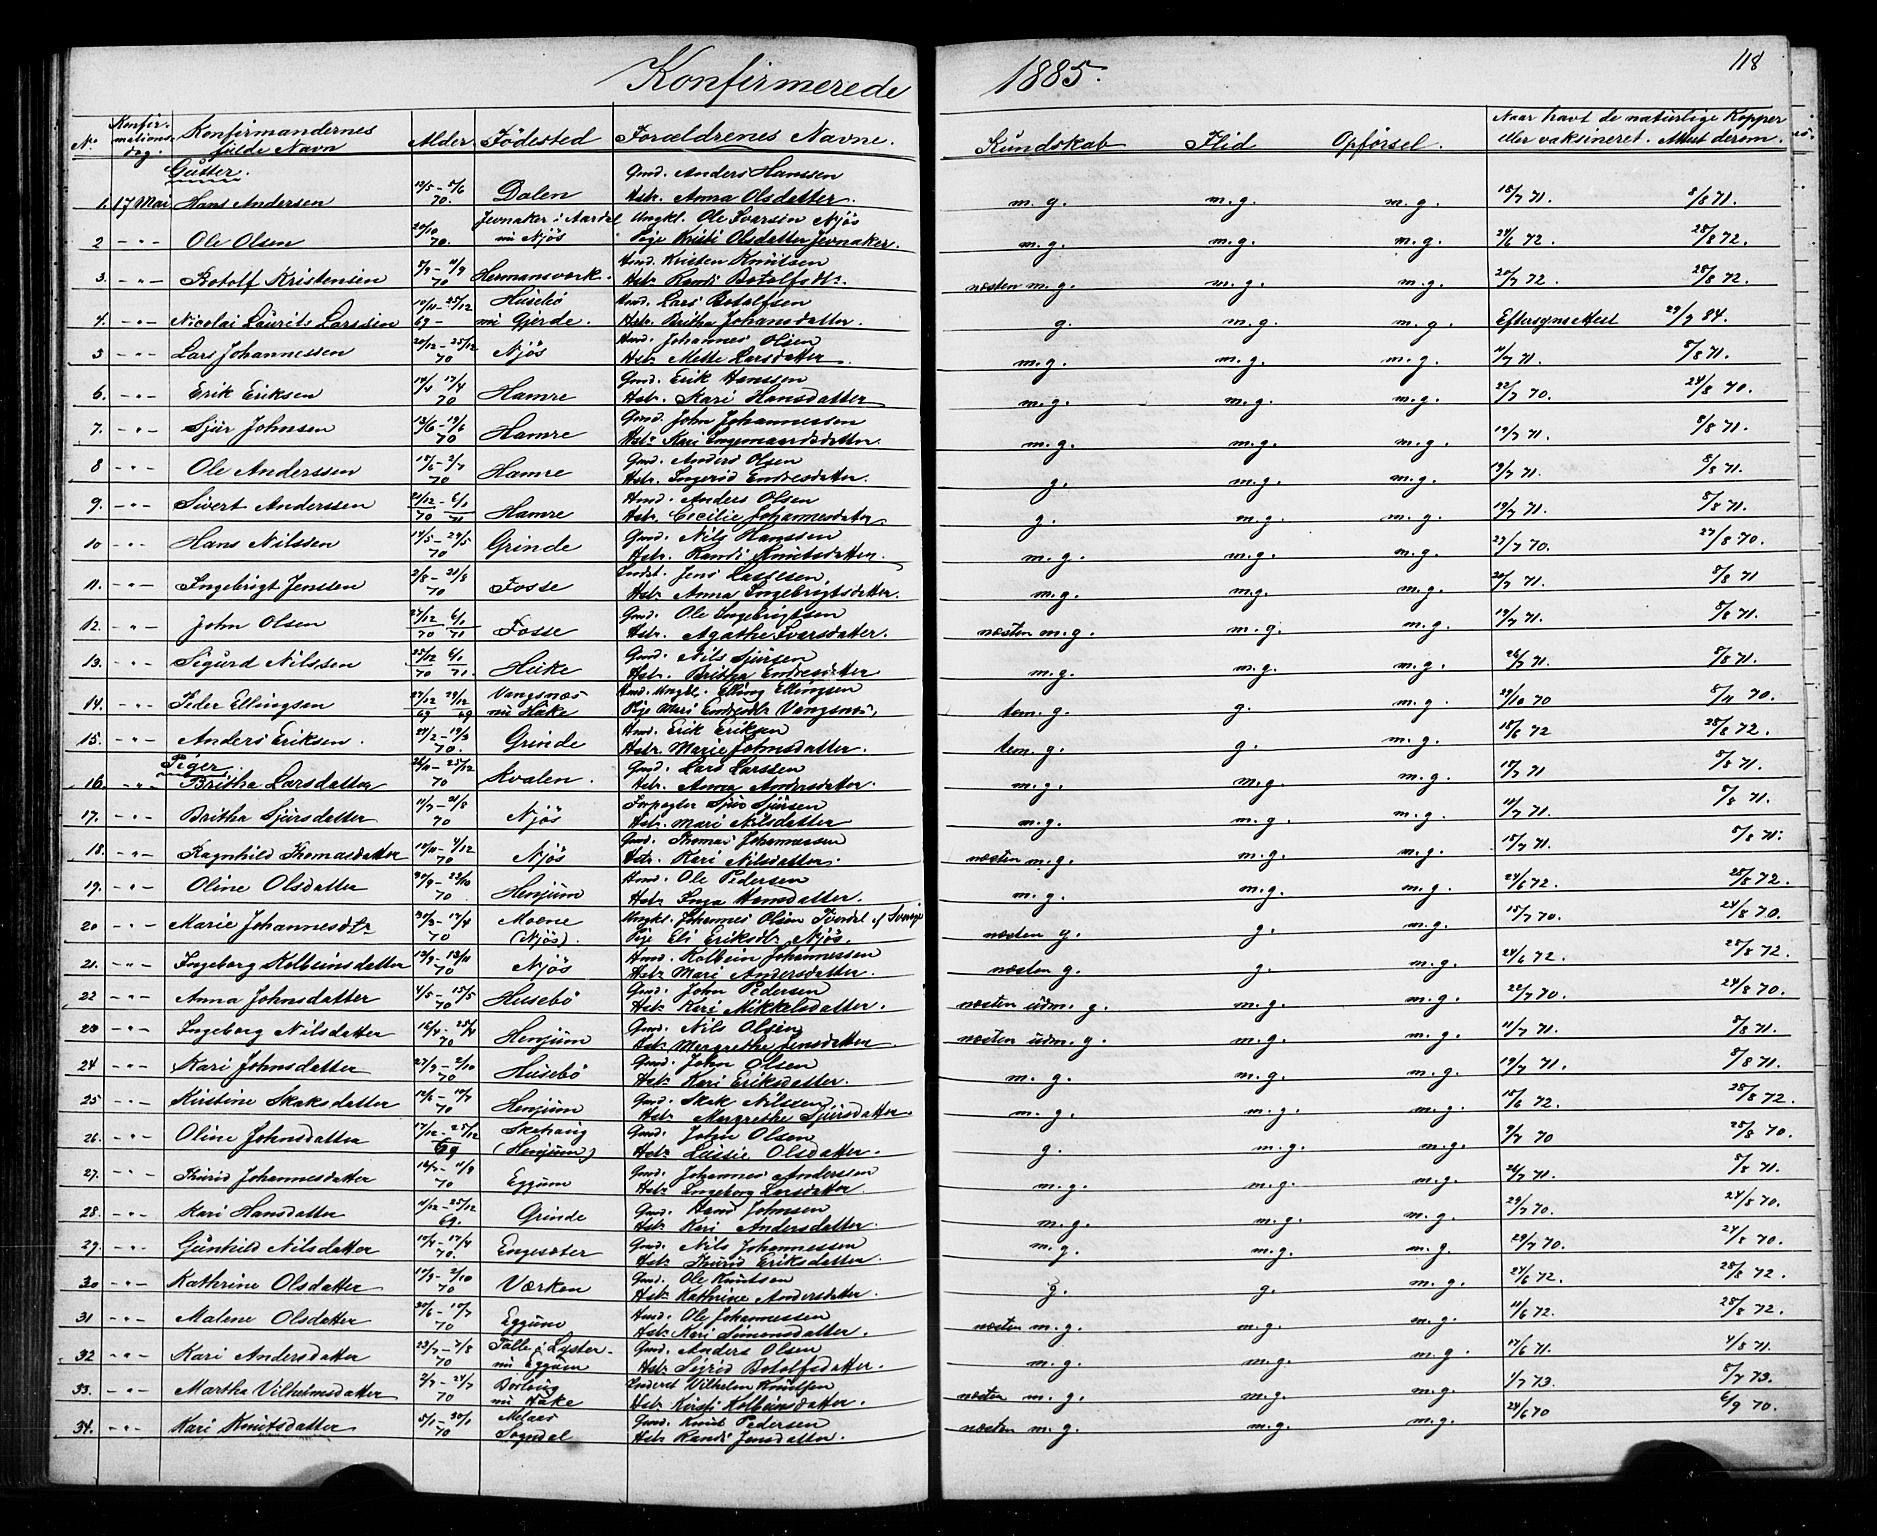 Konfirmerede 1885. 118
No Konfirmationsdag. Konfirmandernes fulde Navn Alder Födested Forældrenes Navne. Kundskab Flid Opförsel. Naar havt de naturlige Kopper eller vaksineret. Attest derom.
Gutter.
1. 17 Mai Hans Andersen 19/5 - 5/6 70. Dalen Gmd. Anders Hanssen Hstr. Anna Olsdatter m. g. m. g. m. g. 15/7 71. 8/8 71.
2 -"- Ole Olsen 20/10 70. Jevnaker i Aardal nu Njös Ungkl. Ole Ivarsen Njös Pige Kristi Olsdatter Jevnaker. m. g. m. g. m. g. 24/6 72. 28/8 72.
3. -"- Botolf Kristensen 5/9 - 11/9 70 Hermansværk. Hmd. Kristen Knutsen Hstr. Randi Botolfsdtr. næsten m. g. m. g. m. g. 20/7 72. 28/8 72.
4. -"- Nicolai Laurits Larssen 19/11 - 25/12 69 - Husebö nu Gjerde. Hmd. Lars Botolfsen Hstr. Britha Johansdatter. g. m. g. m. g. Eftersyns Attest 29/9 84.
5 -"- Lars Johannessen 20/12 - 25/12 70 Njös Hmd. Johannes Olsen Hstr. Mette Larsdatter m. g. m. g. m. g. 11/7 71. 8/8 71.
6. -"- Erik Eriksen 14/4 17/4 70 Hamre Gmd. Erik Hanssen Hstr. Kari Hansdatter m. g. m. g. m. g. 22/7 70. 24/8 70.
7. -"- Sjur Johnsen 13/6 - 19/6 70 Hamre Gmd. John Johannessen Hstr. Kari Ingemaardsdatter. m. g. m. g. m. g. 19/7 71. 8/8 71.
8 -"- Ole Anderssen 18/6 - 2/7 70 Hamre Gmd. Anders Olsen Hstr. Ingerid Endresdatter. g. m. g. m. g. 19/7 71. 8/8 71.
9. -"- Sivert Anderssen 21/12 70 - 6/1 71 Hamre Hmd. Anders Olsen Hstr. Cecilie Johannesdatter g. m. g. m. g. 19/7 71. 8/8 71.
10 -"- Hans Nilssen 14/5 - 29/5 70 Grinde Gmd. Nils Hanssen Hstr. Randi Knutsdatter. m. g. m. g. m. g. 23/7 70. 27/8 70.
11. -"- Ingebrigt Jenssen 2/8 - 21/8 70 Fosse Jens Lassesen Hstr. Anna Ingebrigtsdatter. m. g. m. g. m. g. 20/7 71. 8/8 71
12. -"- John Olsen 27/12 70 6/1 71 Fosse Gmd. Ole Ingebrigtsen Hstr. Agathe Ivarsdatter. næsten m. g. m. g. m. g. 19/7 71. 8/8 71.
13. -"- Sigurd Nilssen 25/12 70 6/1 71. Huke Gmd. Nils Sjursen Hstr. Britha Endresdatter m. g. m. g. m. g. 26/7 71. 8/8 71.
14. -"- Peder Ellingsen 27/12 69 29/12 69 Vangsnæs nu Hake Ungkl. Elling Ellingsen Pige Mari Endresdtr Vangsnæs, tem. g. g. m. g. 29/10 70 70.
15. -"- Anders Eriksen. 22/2 - 19/3 70. Grinde Hmd. Erik Eriksen Hstr. Marie Johnsdatter. tem. g. g. m. g. 18/6 72 28/8 72.
Piger.
16. -"- Britha Larsdatter 26/11 - 25/12 70 Kvalen. Gmd. Lars Larssen Hstr. Anna Andersdatter. m. g. m. g. m. g. 17/7 71 8/8 71.
17. -"- Britha Sjursdatter 11/7 - 21/8 70 Njös Forpagter Sjur Sjursen Hstr. Mari Nilsdatter m. g. m. g. m. g. 11/7 71. 8/8 71.
18. -"- Ragnhild Thomasdatter 19/11 - 4/12 70 Njös Gmd. Thomas Johannessen Hstr. Kari Nilsdatter. næsten m. g. m. g. m. g. 15/7 71. 8/8 71.
19. -"- Oline Olsdatter 30/9 - 23/10 70. Henjum Hmd. Ole Pedersen Hstr. Inga Hansdatter. m. g. m. g. m. g. 24/6 72. 28/8 72.
20 -"- Marie Johannesdtr 30/3 - 17/4 70 Moene (Njös). Ungkl. Johannes Olsen af Sverige Pige Eli Eriksdtr Njös. næsten g. g. m. g. 15/7 70. 24/8 70.
21. -"- Ingeborg Kolbeinsdatter 19/9 - 13/11 70 Njös Hmd. Kolbein Johannessen Hstr Mari Andersdatter. næsten g. g. m. g. 24/6 72. 28/8 72.
22 -"- Anna Johnsdatter 4/5 - 15/5 70 Husebö Gmd. John Pedersen Hstr. Kari Mikkelsdatter. næsten udm. g. m. g. m. g. 22/7 70. 24/8 70.
23 -"- Ingeborg Nilsdatter 16/4 - 25/4 70 Henjum Gmd. Nils Olsen Hstr. Margrethe Jensdatter næsten udm. g. m. g. m. g. 11/7 71. 8/8 71.
24 -"- Kari Johnsdatter 27/9 - 2/10 70 Husebö Gmd. John Olsen Hstr. Kari Eriksdatter. m. g. m. g. m. g. 19/7 71. 8/8 71.
25 -"- Kirstine Skaksdatter 12/6 - 10/7 70 Henjum Gmd. Skak Nilssen Hstr. Margrethe Sjursdatter. m. g. m. g. m. g. 18/6 72. 28/8 72.
26. -"- Oline Johnsdatter 17/12 - 25/12 69 Skehaug (Henjum) Gmd. John Olsen Hstr. Lussie Olsdatter. g. m. g. m. g. 9/7 70 25/8 70.
27. -"- Thurid Johannesdatter 70 Eggum Gmd. Johannes Andersen Hstr. Ingeborg Larsdatter. m. g. m. g. m. g. 26/7 71. 8/8 71.
28. -"- Kari Hansdatter 11/12 - 25/12 69. Grinde Gmd. Hans Johnsen Hstr. Kari Andersdatter. m. g. m. g. m. g. 29/7 70. 24/8 70.
29. -"- Gunhild Nilsdatter 10/4 - 17/4 70. Engesæter Gmd. Nils Johannessen Hstr. Thurid Eriksdatter. m. g. m. g. m. g. 29/7 70. 24/8 70.
30 -"- Kathrine Olsdatter 17/9 - 2/10 70 Værken Gmd. Ole Knutsen Hstr. Kathrine Andersdatter. g. g. m. g. 24/6 72. 28/8 72.
31 -"- Malene Olsdatter 30/6 - 10/7 70 Eggum Hmd. Ole Johannessen Hstr. Kari Simonsdatter. næsten m. g. m. g. m. g. 11/6 72. 28/8 72.
32 -"- Kari Andersdatter 23/7 - 7/8 70 i Lyster - nu Eggum Gmd. Anders Olsen Hstr. Sigrid Botolfsdatter. m. g. m. g. m. g. 17/6 71. 4/8 71.
33. -"- Martha Vilhelmsdatter 2/7 - 24/7 70 nu Hake Vilhelm Knutsen Hstr. Kirsti Kolbeinsdatter. næsten m. g. m. g. m. g. 1/7 73. 8/7 73.
34. -"- Kari Knutsdatter 5/1 - 20/1 70 Sogndal Gmd. Knut Pedersen Hstr. Randi Jensdatter. næsten m. g. m. g. m. g. 24/6 70 6/9 70.